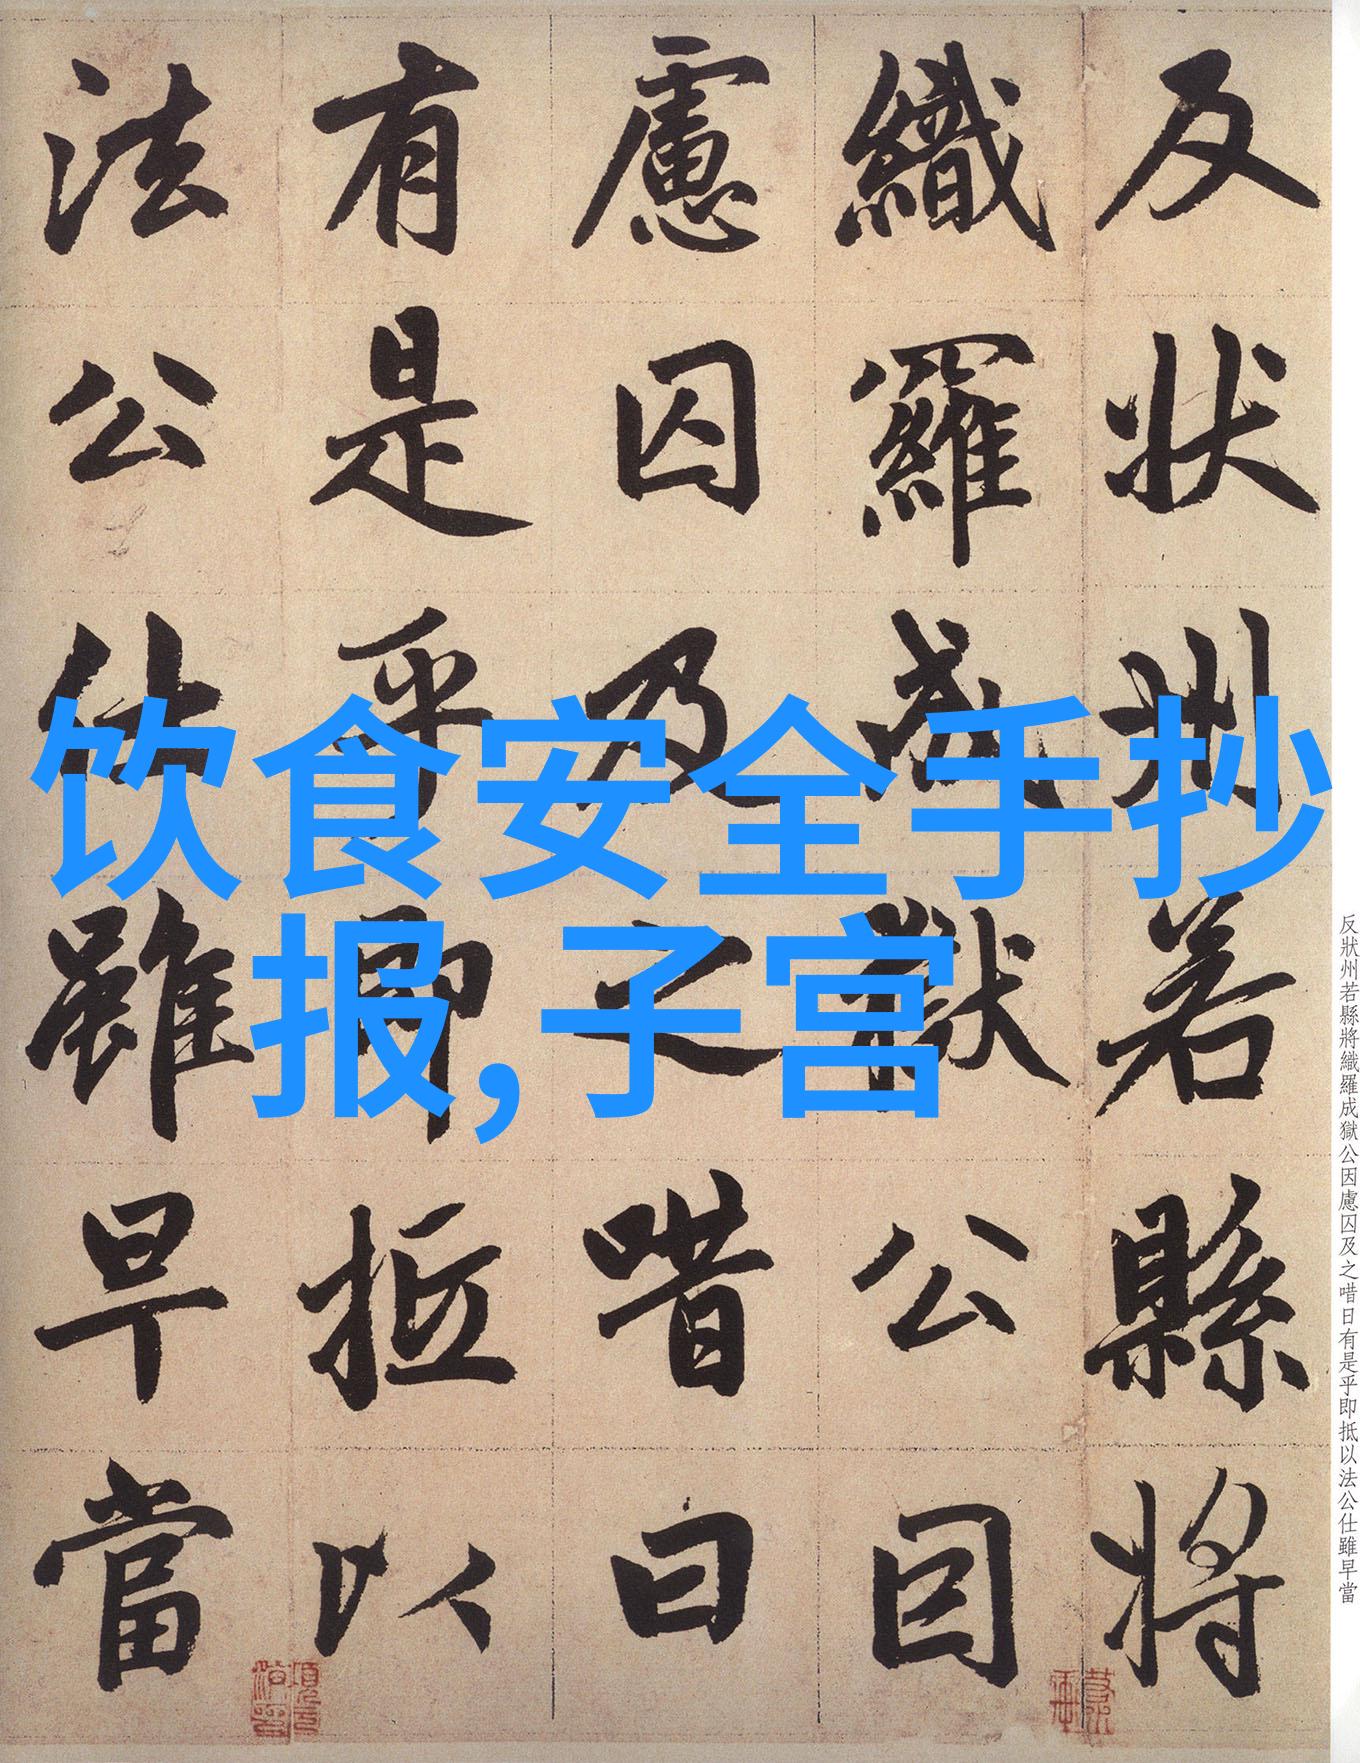 反狀州若縣將
織羅成獄公因
慮囚及之唶日
有是乎即抵以
法公仕雖早當
饮食安全手抄
报,子宫
反狀州若縣將織羅成獄公因慮囚及之唶日有是乎即抵以法公仕雖早當